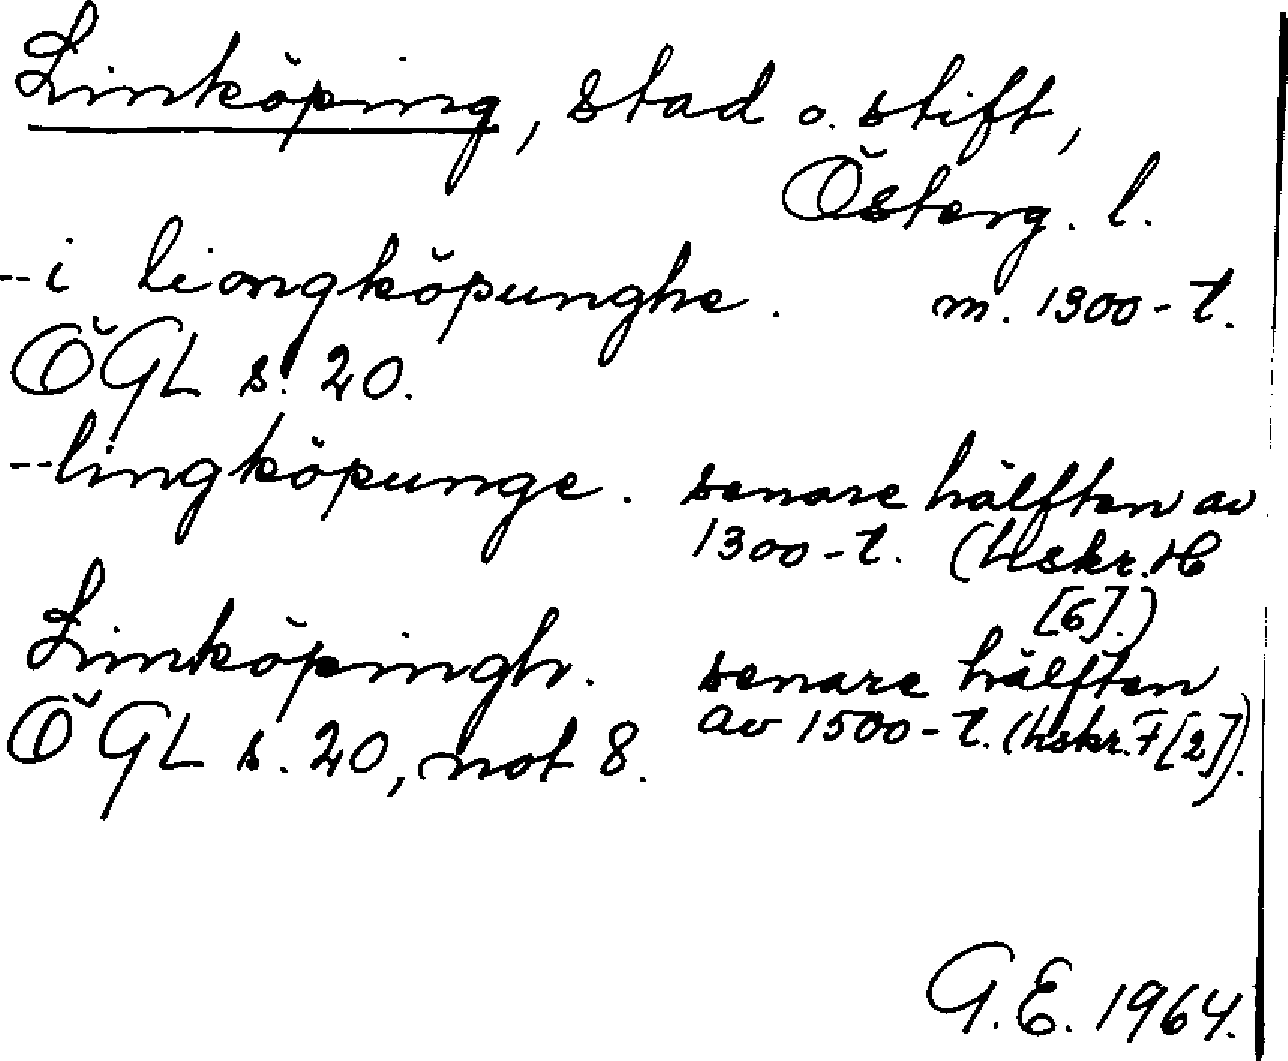 Linköping, stad o. stift,
Österg. l.
-- i liongköpunghe. m. 1300-t.
ÖGL s. 20.
-- lingköpunge. senare hälften av
1300-t. (hskr. H
[6].)
Linköpingh. senare hälften
ÖGL s. 20, not 8. av 1500-t. (hskr. F [2]).
G.E. 1964.